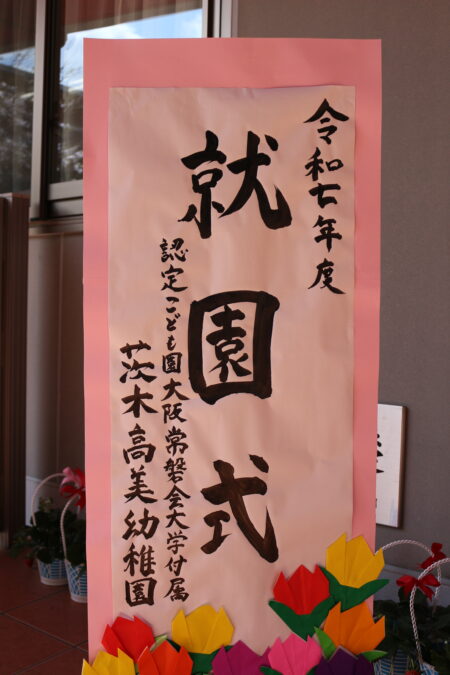 令和七年度
就園式
認定こども園大阪常磐会大学付属
茨木高美幼稚園